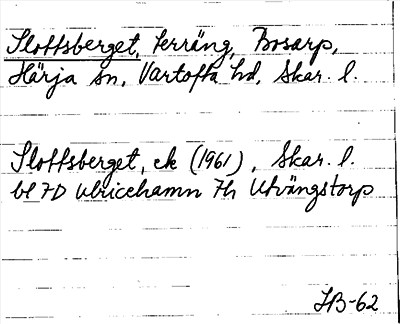 Slottsberget, terräng, Bosarp,
Härja sn, Vartofta hd, Skar. l.
Slottsberget, ek (1961), Skar. l.
bl 7D Ulricehamn 7h Utvängstorp
IB-62